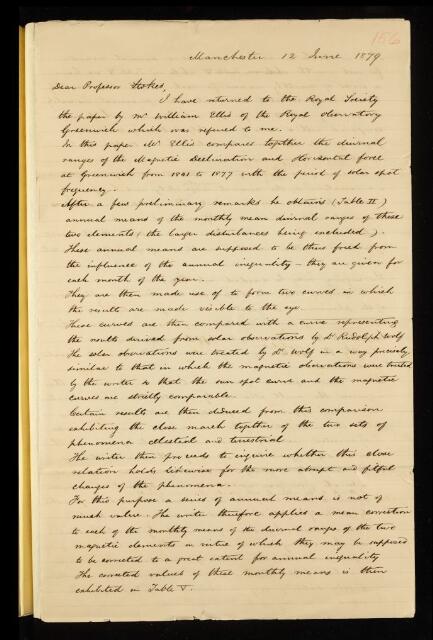 156
Manchester 12 June 1879
Dear Professor Stokes,
I have returned to the Royal Society
the paper by Mr William Ellis of the Royal Observatory
Greenwich which was referred to me.
In this paper Mr Ellis compares together the diurnal
ranges of the Magnetic Declination and Horizontal force
at Greenwich from 1841 to 1877 with the period of solar spot
frequency.
After a few preliminary remarks he obtains (Table II)
annual means of the monthly mean diurnal ranges of these
two elements (the larger disturbances being excluded).
These annual means are supposed to be thus freed from
the influence of the annual inequality – they are given for
each month of the year.
They are then made use of to form two curves in which
the results are made visible to the eye.
These curves are then compared with a curve representing
the results derived from solar observations by Dr Rudolph Wolf
The solar observations were treated by Dr Wolf in a way precisely
similar to that in which the magnetic observations were treated
by the writer so that the sun spot curve and the magnetic
curves are strictly comparable.
Certain results are then deduced from this comparison
exhibiting the close march together of the two sets of
phenomena celestial and terrestrial
The writer then proceeds to enquire whether this close
relation holds likewise for the more abrupt and fitful
changes of the phenomena.
For this purpose a series of annual means is not of
much value. The writer therefore applies a mean correction
to each of the monthly means of the diurnal ranges of the two
magnetic elements in virtue of which they may be supposed
to be corrected to a great extent for annual inequality
The corrected values of these monthly means is then
exhibited in Table V.